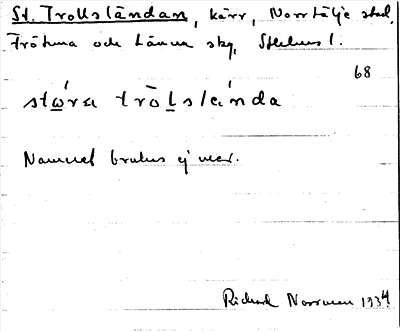 St. Trollsländan, kärr, Norrtälje stad,
Frötuna och Länna skg, Sthlms l.
68
stώra trōlslända
Namnet brukas ej mer.
Richard Norrman 1934